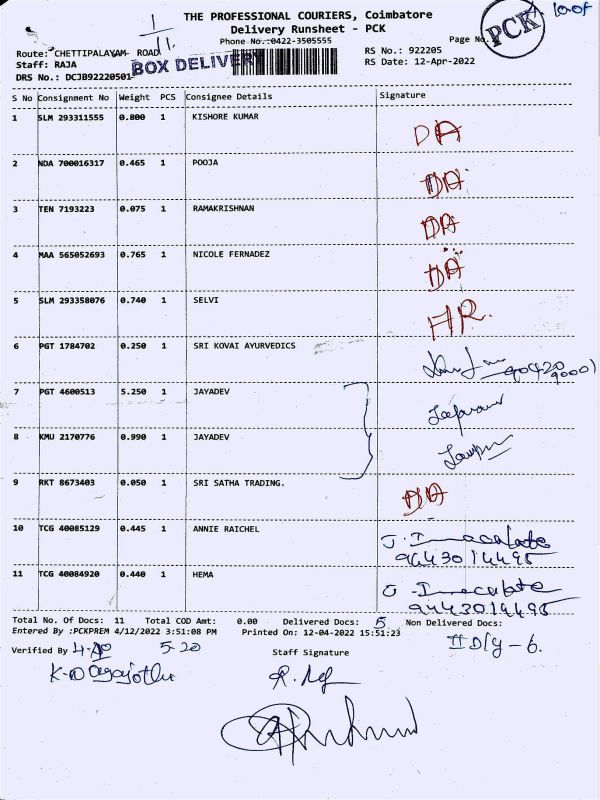 THE PROFESSIONAL COURIERS, Coimbatore
Delivery Runsheet - PCK
Phone No.:0422-3505555
Page No.
PCK
1
1
Route: CHETTIPALAYAM ROAD
RS No.: 922205
Staff: RAJA
BOX DELIVERY
RS Date: 12-Apr-2022
DRS No.: DCJB92220501
S No Consignment No Weight PCS Consignee Details Signature
1 SLM 293311555 0.800 1 KISHORE KUMAR DA
2 NDA 700016317 0.465 1 POOJA DA
3 TEN 7193223 0.075 1 RAMAKRISHNAN DA
4 MAA 565052693 0.765 1 NICOLE FERNADEZ DA
5 SLM 293358076 0.740 1 SELVI HR.
6 PGT 1784702 0.250 1 SRI KOVAI AYURVEDICS
90420
90001
7 PGT 4600513 5.250 1 JAYADEV
8 KMU 2170776 0.990 1 JAYADEV
9 RKT 8673403 0.050 1 SRI SATHA TRADING. DA
10 TCG 40085129 0.445 1 ANNIE RAICHEL
9443014495
11 TCG 40084920 0.440 1 HEMA
9443014495
Total No. Of Docs: 11 Total COD Amt: 0.00 Delivered Docs: 5 Non Delivered Docs:
Entered By :PCKPREM 4/12/2022 3:51:08 PM Printed On: 12-04-2022 15:51:23
Verified By 5-20 Staff Signature